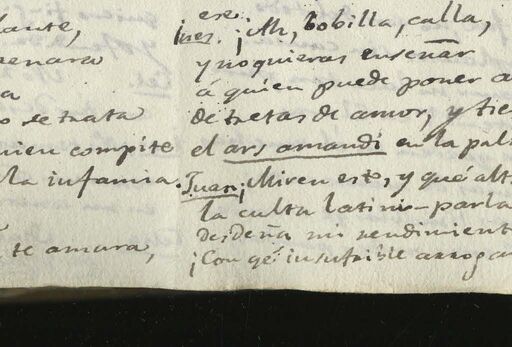 lante,
enara
a
o se trata
uien compite
la infamia.
te amara,
ese.
Ines. ¡Ah, bobilla, calla,
y no quieras enseñar
á quien puede poner a
de tretas de amor, y tie
el ars amandi en la pal
Juan. ¡Miren esto, y qué alt
la culta latini-parla
desdeña mi rendimient
¡Con qé insufrible arrogan